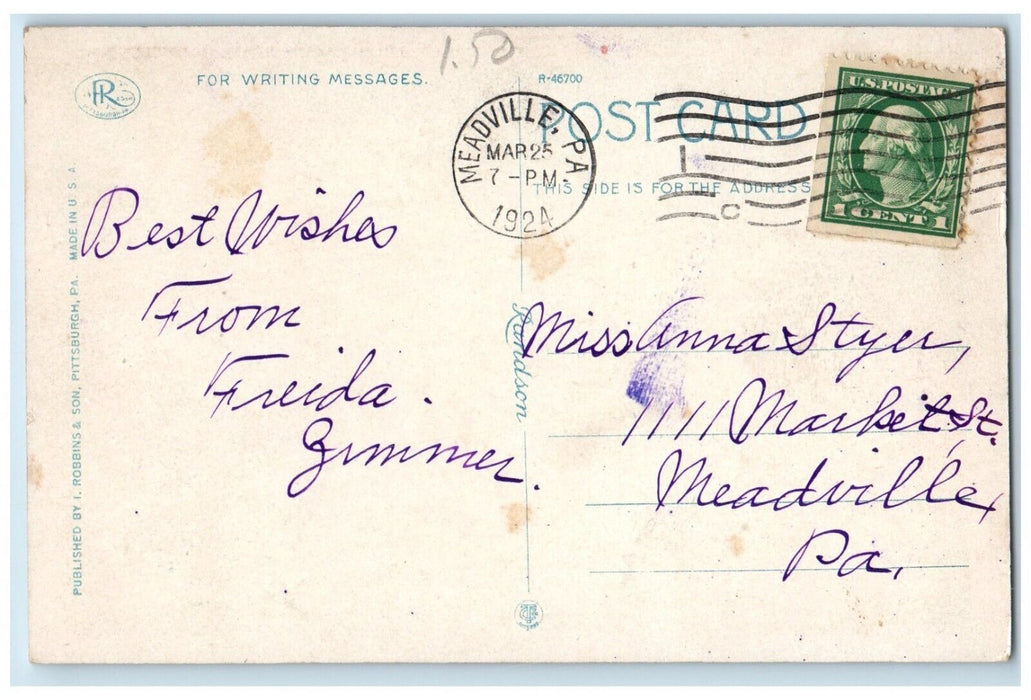 1.50
FOR WRITING MESSAGES.
R-46700
POST CARD
THIS SIDE IS FOR THE ADDRESS
MEADVILLE, PA
MAR 25
7 - P.M.
1924
U.S. POSTAGE
1 CENT 1
PUBLISHED BY I. ROBBINS & SON, PITTSBURGH, PA. MADE IN U.S.A.
Best Wishes
From
Freida.
Zimmer.
Randson
Miss Anna Styer,
1111 Market St.
Meadville,
Pa.